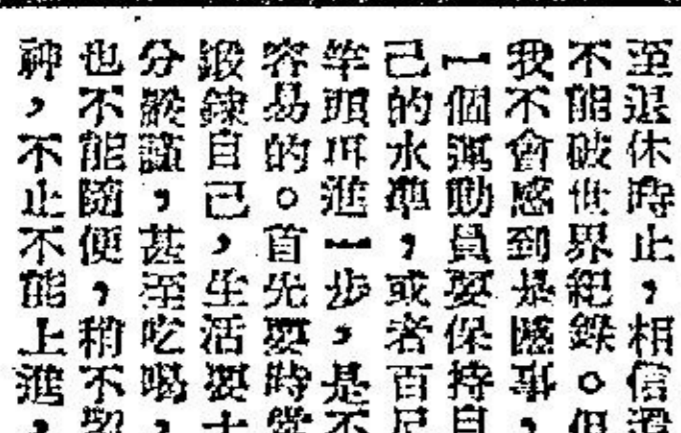 至退休時止，相信還
不能破世界紀錄。但
我不會感到是憾事，
一個運動員要保持自
己的水準，或者百尺
竿頭再進一步，是不
容易的。首先要時常
鍛鍊自己，生活要
分嚴謹，甚至吃喝，
也不能隨便，稍不
神，不止不能上進，